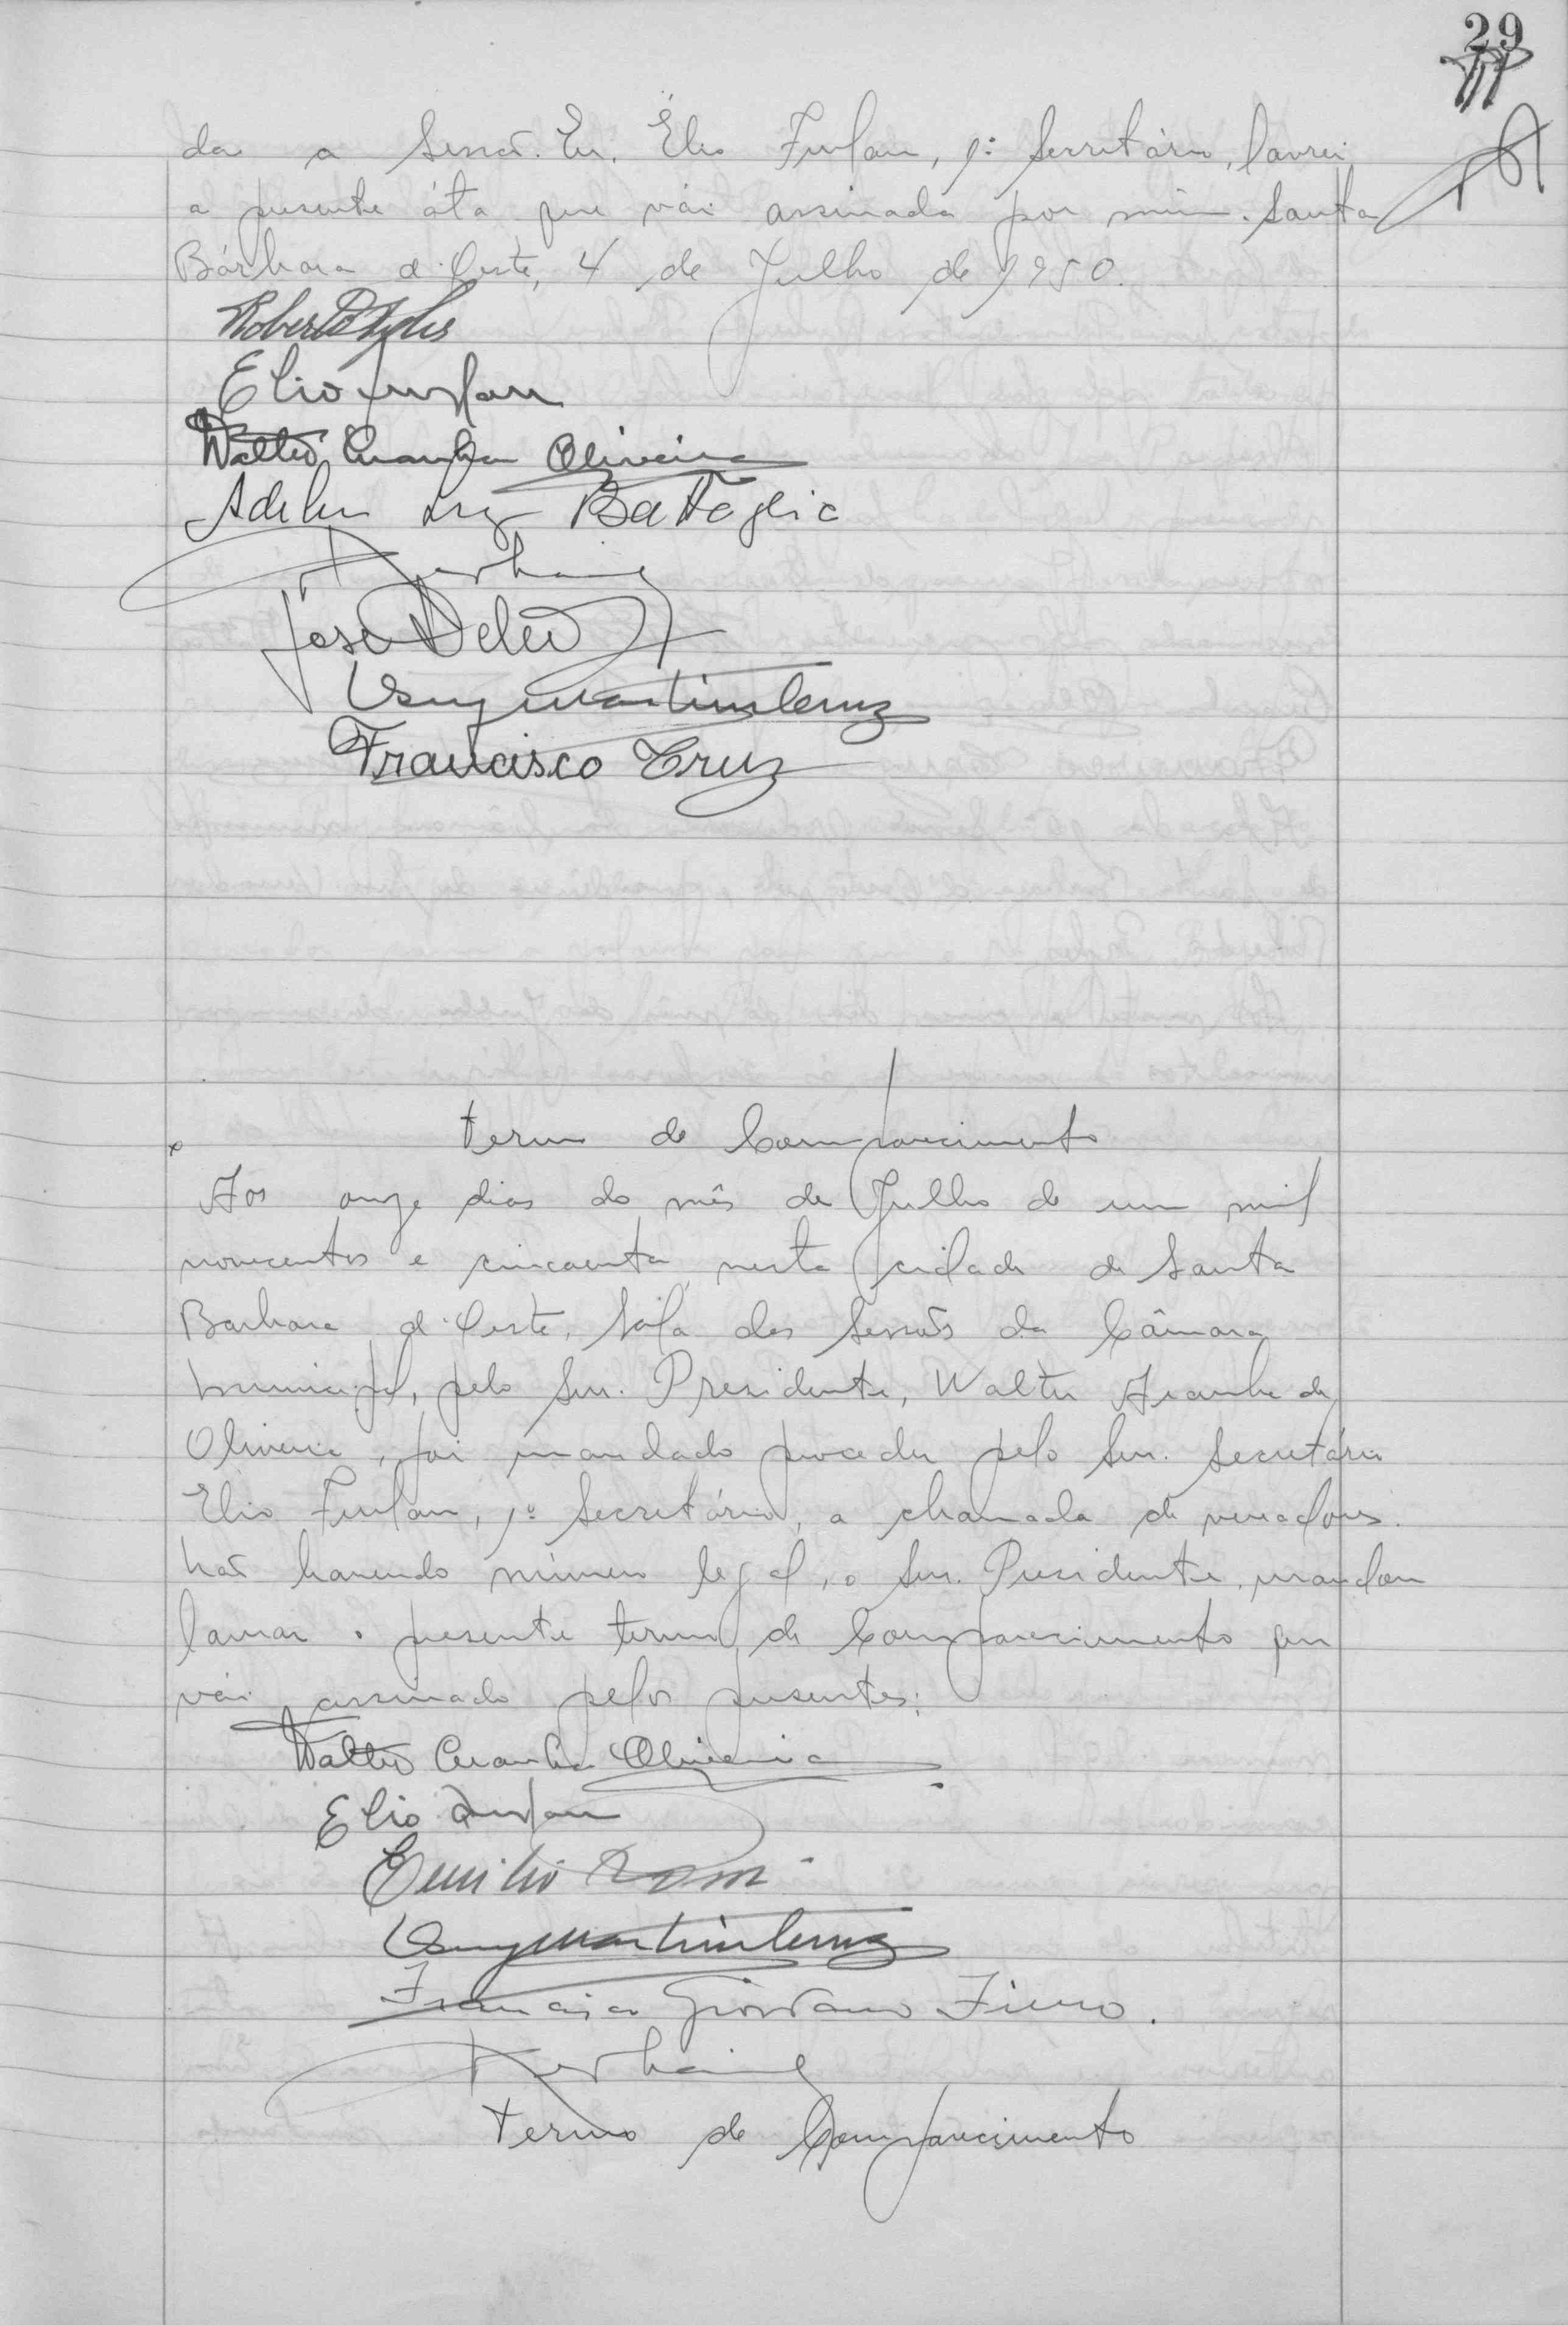 29
da a Sessão. Eu, Élio Furlan, 1º Secretário, lavrei
a presente áta que vai assinada por mim. Santa
Bárbara d'Oeste, 4 de Julho de 1950.
Elio Furlan
Walter Aranha Oliveira
Bataglia
José
Martins Cruz
Francisco Cruz
Termo de Comparecimento
Aos onze dias do mês de Julho de um mil
novecentos e cincoenta, nesta cidade de Santa
Barbara d'Oeste, Sala das Sessões da Câmara
Municipal, pelo Snr. Presidente, Walter Aranha de
Oliveira, foi mandado proceder pelo Snr. Secretário
Elio Furlan, 1º Secretário, a chamada de vereadores.
Não havendo número legal, o Snr. Presidente, mandou
lavrar o presente termo de Comparecimento que
vai assinado pelos presentes:
Walter Aranha Oliveira
Elio Furlan
Emilio Romi
Martins Cruz
Francisco Giordano Fiuno.
Termo de Comparecimento